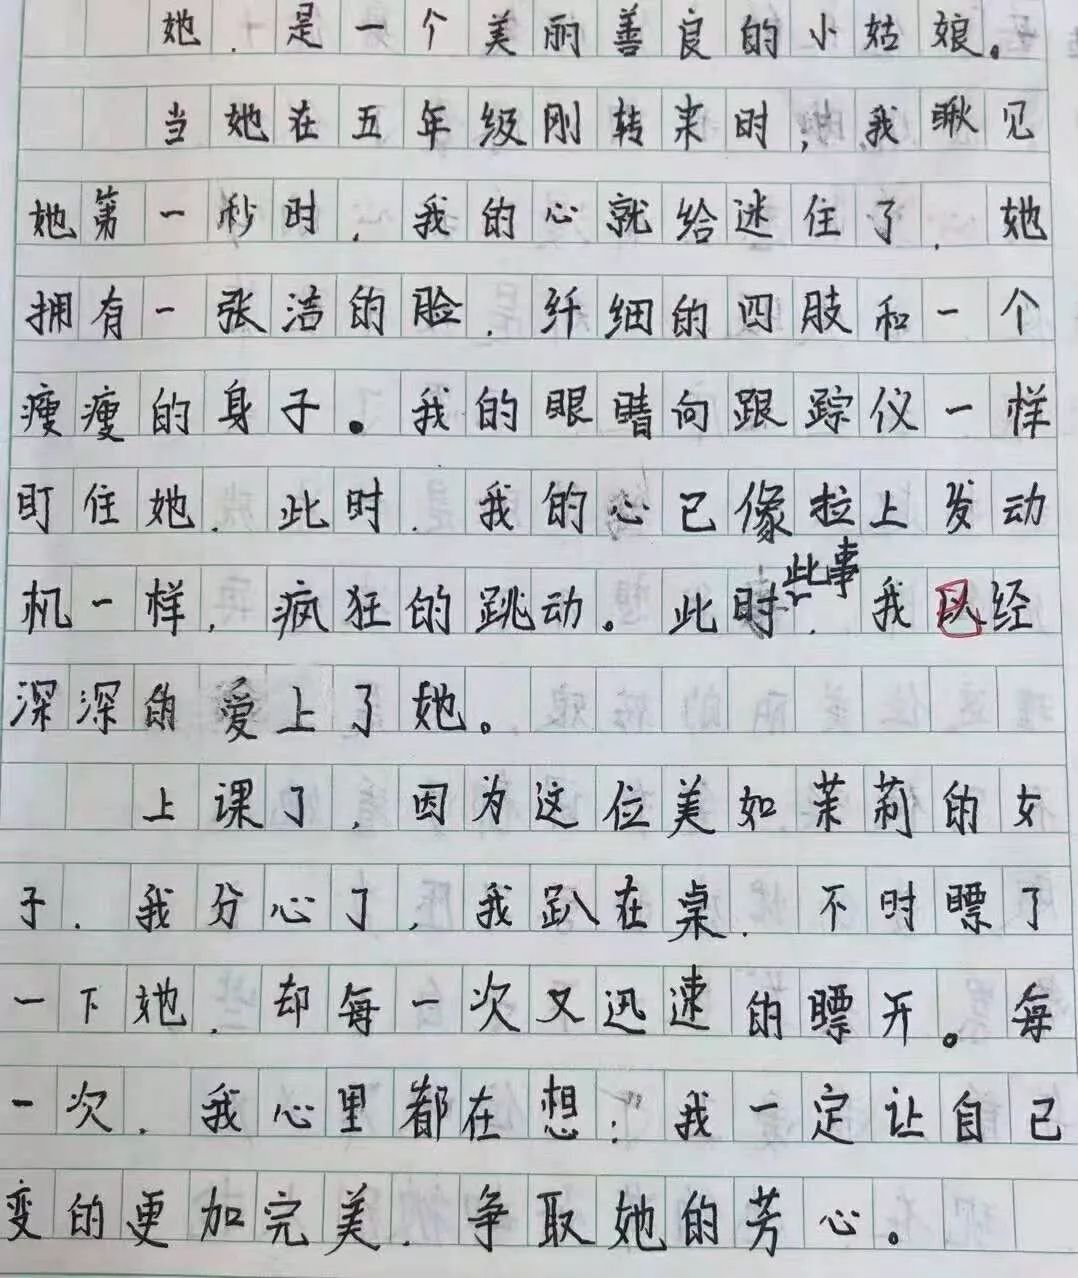 她，是一个美丽善良的小姑娘。
当她在五年级刚转来时，我瞅见
她第一秒时，我的心就给迷住了，她
拥有一张洁的脸，纤细的四肢和一个
瘦瘦的身子。我的眼睛向跟踪仪一样
盯住她，此时，我的心已像拉上发动
机一样，疯狂的跳动。此时此事，我以经
深深的爱上了她。
上课了，因为这位美如茉莉的女
子，我分心了，我趴在桌，不时瞟了
一下她，却每一次又迅速的瞟开。每
一次，我心里都在想：“我一定让自己
变的更加完美，争取她的芳心。